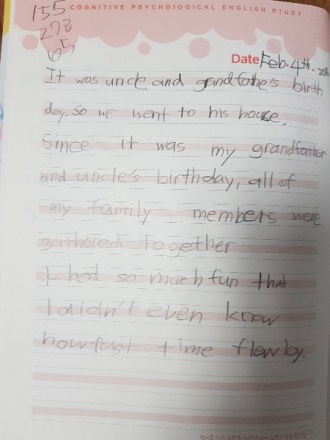 155
273
65
COGNITIVE PSYCHOLOGICAL ENGLISH STUDY
Date Feb. 4th.
It was uncle and grandfathe's birth
day. So we went to his house.
Since it was my grandfather
and uncle's birthday, all of
my family members were
gathered together
I had so much fun that
I didn't even know
how fast time flew by.